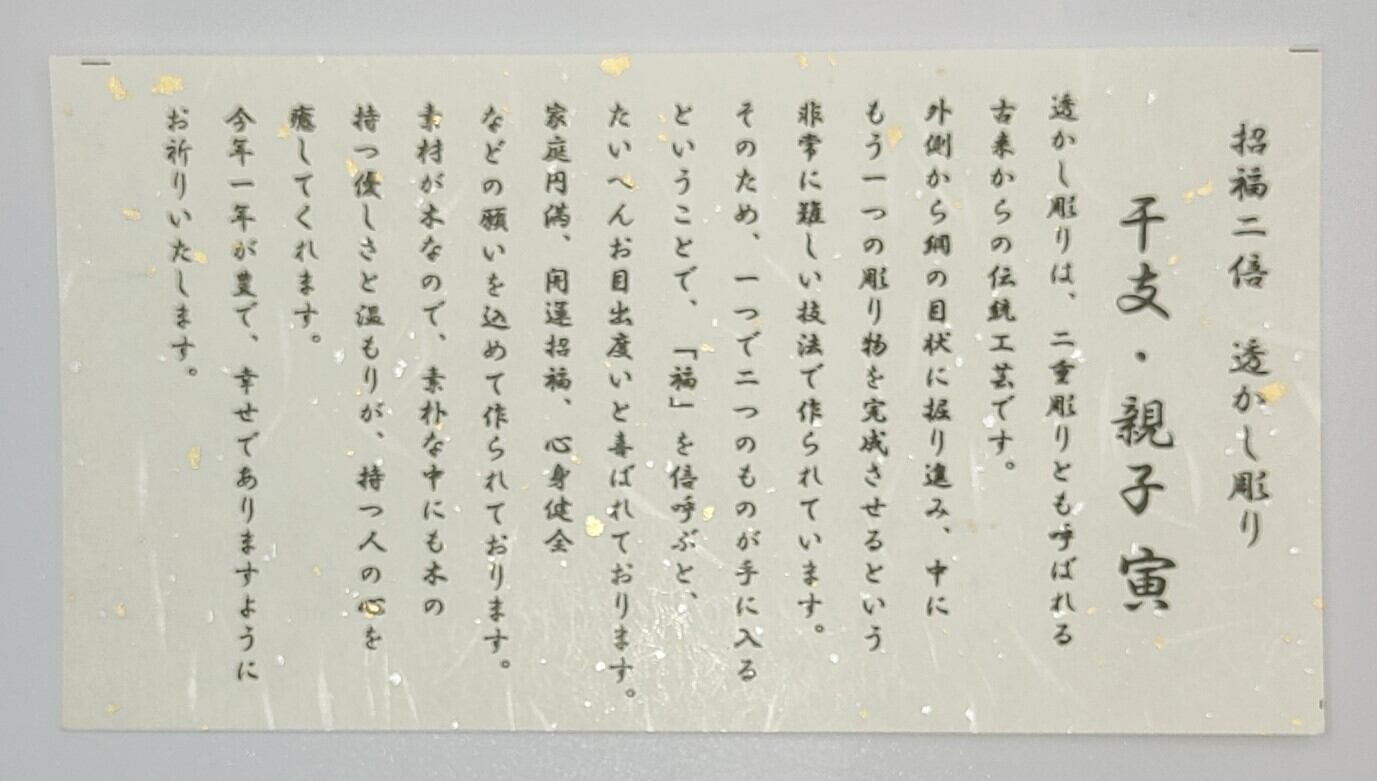 招福二倍　透かし彫り
干支・親子寅
透かし彫りは、二重彫りとも呼ばれる
古来からの伝統工芸です。
外側から網の目状に掘り進み、中に
もう一つの彫り物を完成させるという
非常に難しい技法で作られています。
そのため、一つで二つのものが手に入る
ということで、「福」を倍呼ぶと、
たいへんお目出度いと喜ばれております。
家庭円満、開運招福、心身健全
などの願いを込めて作られております。
素材が木なので、素朴な中にも木の
持つ優しさと温もりが、持つ人の心を
癒してくれます。
今年一年が豊で、幸せでありますように
お祈りいたします。